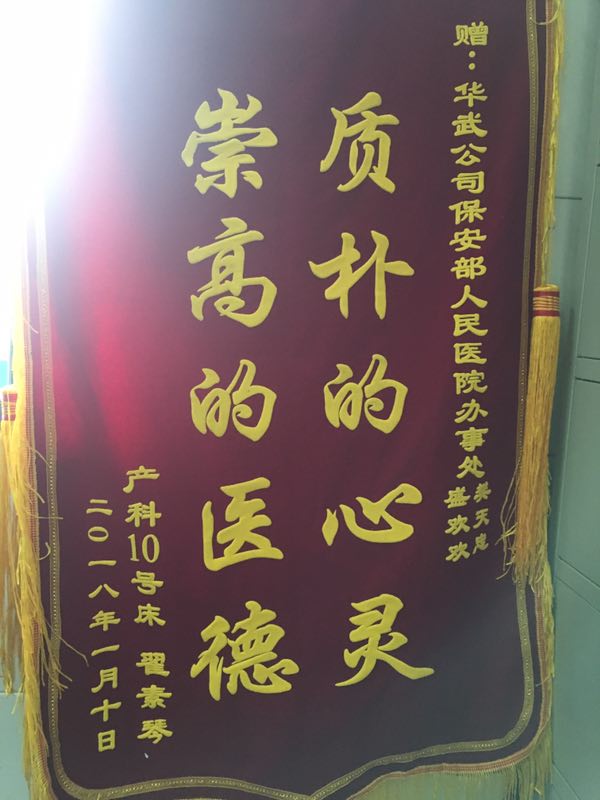 赠：华武公司保安部人民医院办事处
盛欢欢
质朴的心灵
崇高的医德
产科10号床 翟素琴
二〇一八年一月十日